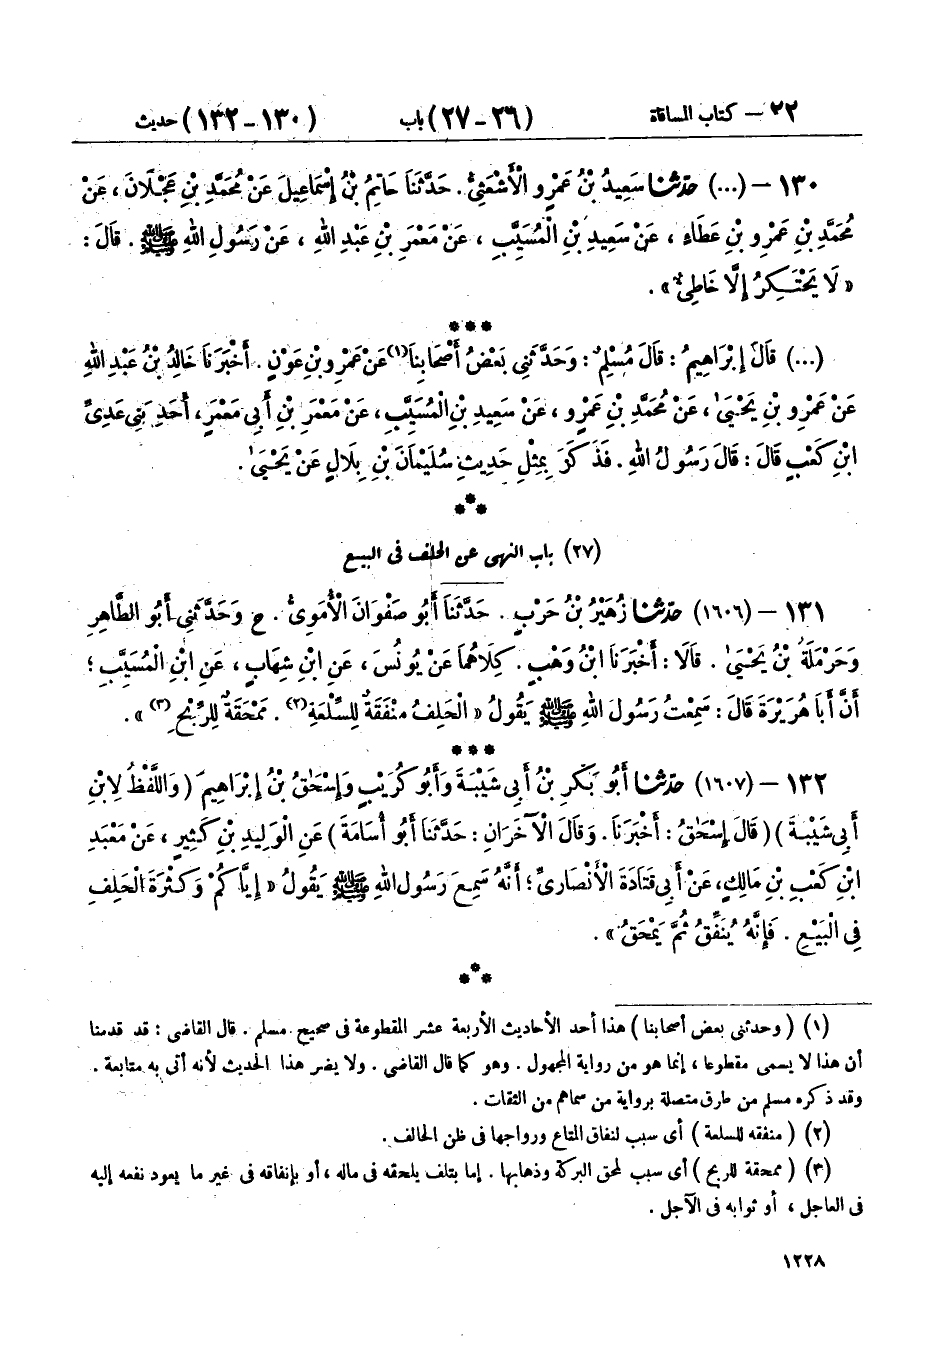 ٢٢ – كتاب المساقاة (٢٦-٢٧) باب (١٣٠-١٣٢) حديث
١٣٠ – (...) حَدَّثَنَا سَعِيدُ بْنُ عَمْرٍو الْأَشْعَثِيُّ . حَدَّثَنَا حَاتِمُ بْنُ إِسْمَاعِيلَ عَنْ مُحَمَّدِ بْنِ عَجْلَانَ ، عَنْ
مُحَمَّدِ بْنِ عَمْرِو بْنِ عَطَاءٍ ، عَنْ سَعِيدِ بْنِ الْمُسَيَّبِ ، عَنْ مَعْمَرِ بْنِ عَبْدِ اللهِ ، عَنْ رَسُولِ اللهِ ﷺ . قَالَ :
« لَا يَحْتَكِرُ إِلَّا خَاطِئٌ » .
***
(...) قَالَ إِبْرَاهِيمُ : قَالَ مُسْلِمٌ : وَحَدَّثَنِي بَعْضُ أَصْحَابِنَا(١) عَنْ عَمْرِو بْنِ عَوْنٍ . أَخْبَرَنَا خَالِدُ بْنُ عَبْدِ اللهِ
عَنْ عَمْرِو بْنِ يَحْيَىٰ ، عَنْ مُحَمَّدِ بْنِ عَمْرٍو ، عَنْ سَعِيدِ بْنِ الْمُسَيَّبِ ، عَنْ مَعْمَرِ بْنِ أَبِي مَعْمَرٍ ، أَحَدِ بَنِي عَدِيِّ
ابْنِ كَعْبٍ قَالَ : قَالَ رَسُولُ اللهِ . فَذَكَرَ بِمِثْلِ حَدِيثِ سُلَيْمَانَ بْنِ بِلَالٍ عَنْ يَحْيَىٰ .
***
(٢٧) باب النهى عن الحلف فى البيع
١٣١ – (١٦٠٦) حَدَّثَنَا زُهَيْرُ بْنُ حَرْبٍ . حَدَّثَنَا أَبُو صَفْوَانَ الْأُمَوِيُّ . ح وَحَدَّثَنِي أَبُو الطَّاهِرِ
وَحَرْمَلَةُ بْنُ يَحْيَىٰ . قَالَا : أَخْبَرَنَا ابْنُ وَهْبٍ . كِلَاهُمَا عَنْ يُونُسَ ، عَنِ ابْنِ شِهَابٍ ، عَنِ ابْنِ الْمُسَيَّبِ ؛
أَنَّ أَبَا هُرَيْرَةَ قَالَ : سَمِعْتُ رَسُولَ اللهِ ﷺ يَقُولُ « الْحَلِفُ مَنْفَقَةٌ لِلسِّلْعَةِ(٢) . مَمْحَقَةٌ لِلرِّبْحِ(٣) » .
***
١٣٢ – (١٦٠٧) حَدَّثَنَا أَبُو بَكْرِ بْنُ أَبِي شَيْبَةَ وَأَبُو كُرَيْبٍ وَإِسْحَٰقُ بْنُ إِبْرَاهِيمَ ( وَاللَّفْظُ لِابْنِ
أَبِي شَيْبَةَ ) ( قَالَ إِسْحَٰقُ : أَخْبَرَنَا . وَقَالَ الْآخَرَانِ : حَدَّثَنَا أَبُو أُسَامَةَ ) عَنِ الْوَلِيدِ بْنِ كَثِيرٍ ، عَنْ مَعْبَدِ
ابْنِ كَعْبِ بْنِ مَالِكٍ ، عَنْ أَبِي قَتَادَةَ الْأَنْصَارِيِّ ؛ أَنَّهُ سَمِعَ رَسُولَ اللهِ ﷺ يَقُولُ « إِيَّاكُمْ وَكَثْرَةَ الْحَلِفِ
فِي الْبَيْعِ . فَإِنَّهُ يُنَفِّقُ ثُمَّ يَمْحَقُ » .
***
(١) ( وحدثنى بعض أصحابنا ) هذا أحد الأحاديث الأربعة عشر المقطوعة فى صحيح مسلم . قال القاضى : قد قدمنا
أن هذا لا يسمى مقطوعا ، إنما هو من رواية المجهول . وهو كما قال القاضى . ولا يضر هذا الحديث لأنه أتى به متابعة .
وقد ذكره مسلم من طرق متصلة برواية من سماهم من الثقات .
(٢) ( منفقه للسلعة ) أى سبب لنفاق المتاع ورواجها فى ظن الحالف .
(٣) ( ممحقة للربح ) أى سبب لمحق البركة وذهابها . إما بتلف يلحقه فى ماله ، أو بإنفاقه فى غير ما يعود نفعه إليه
فى العاجل ، أو ثوابه فى الآجل .
١٢٢٨